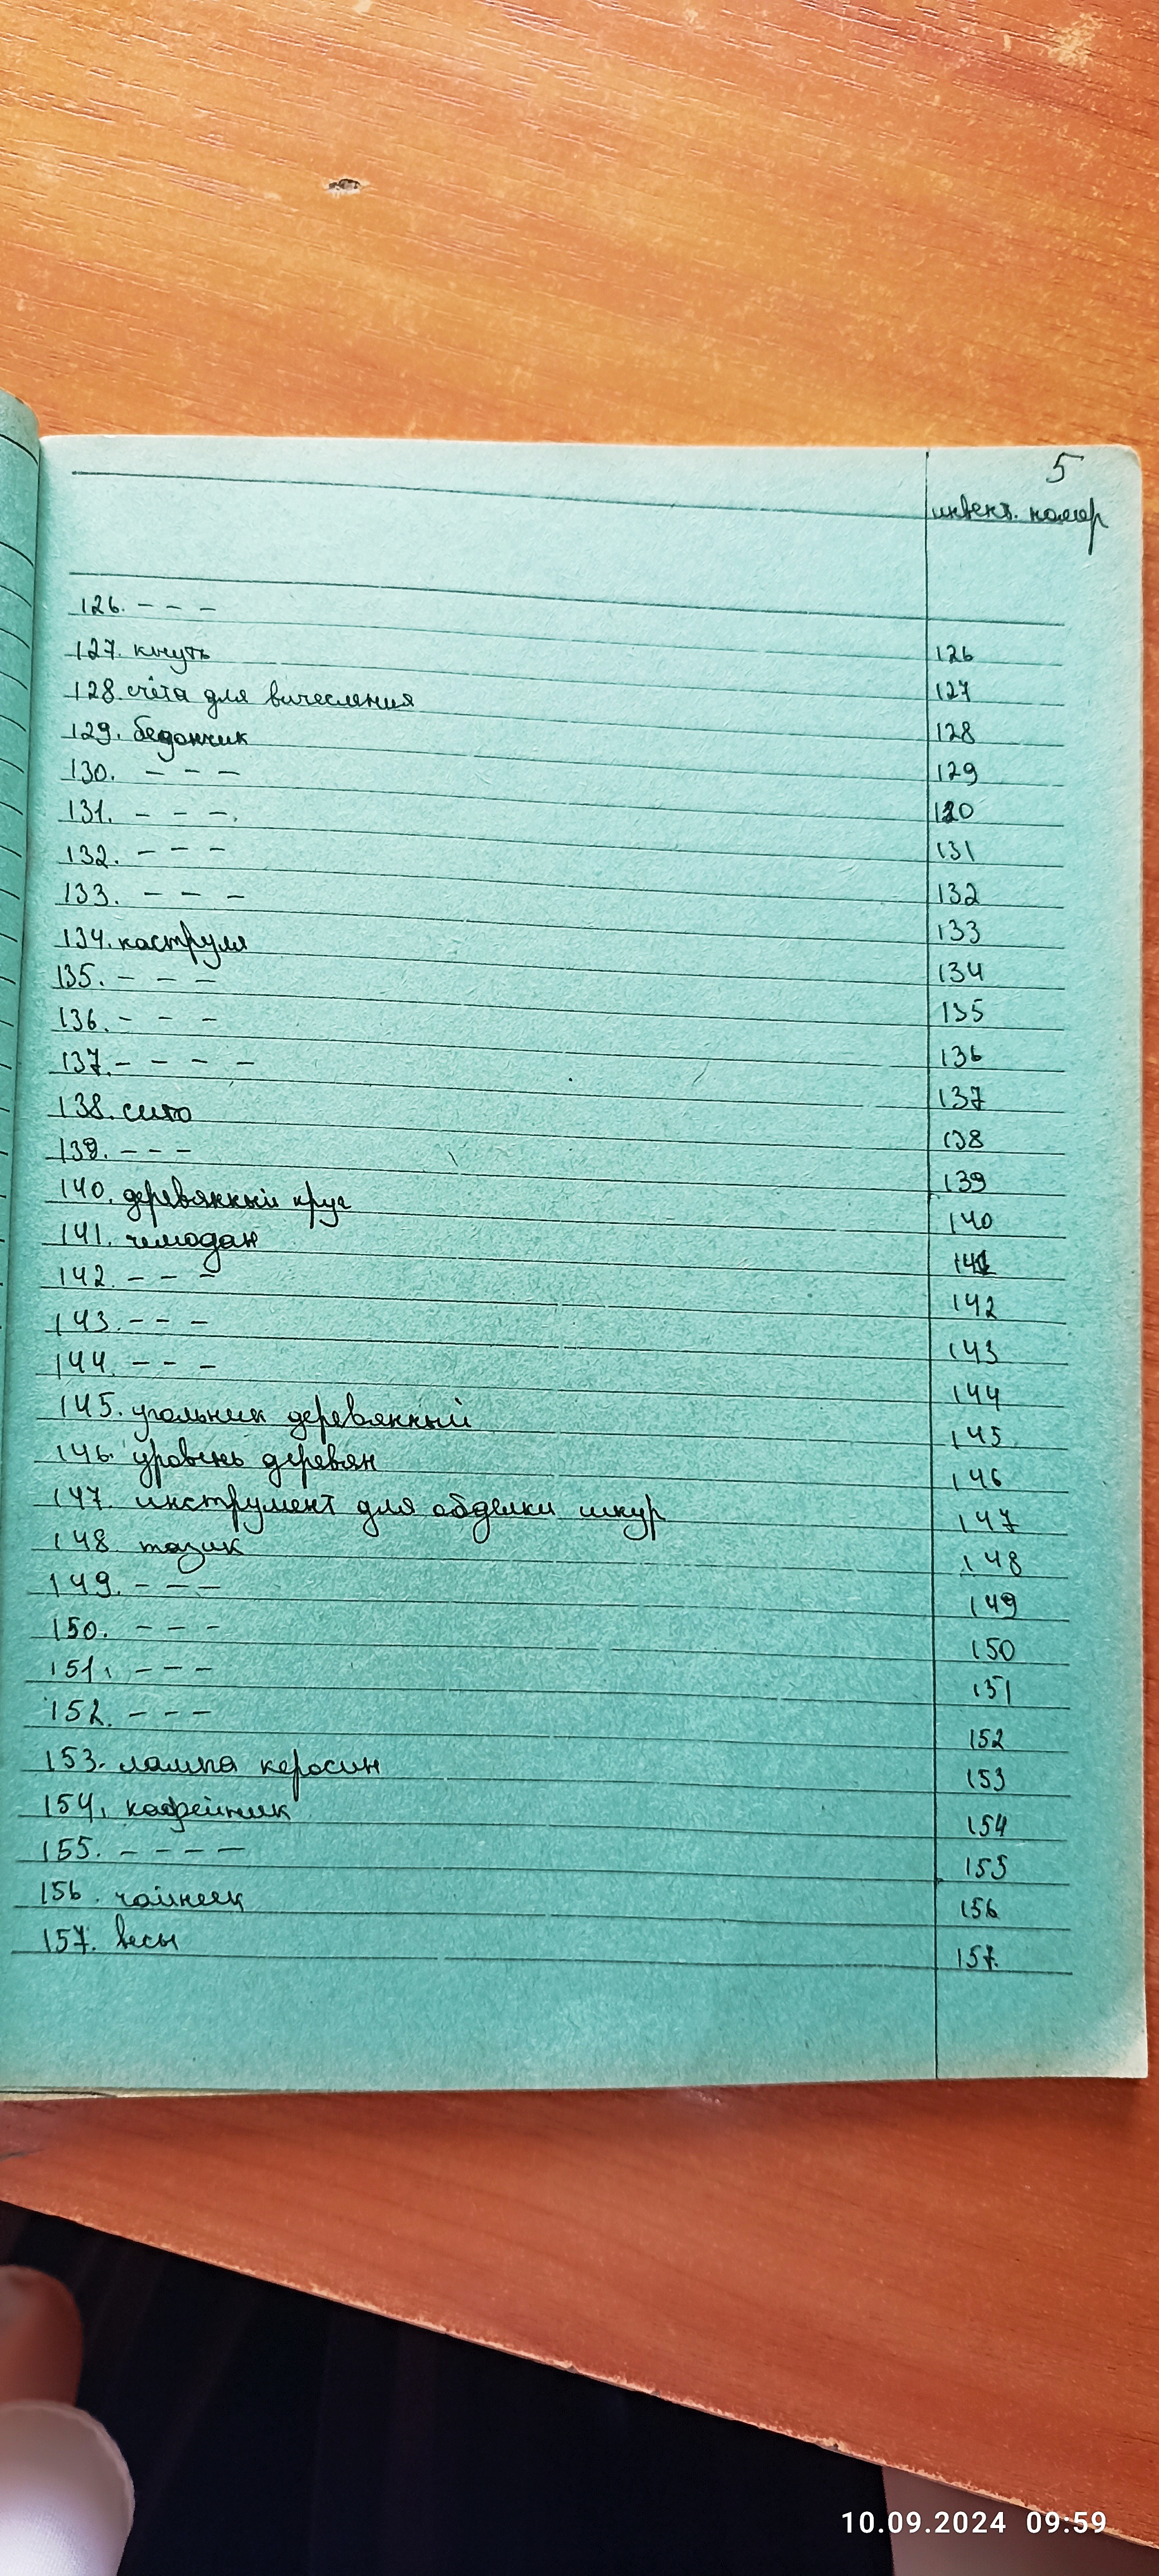 5
инвент. номер
126. – – –
127. кнуть 126
128. счёта для вичесления 127
129. бедончик 128
130. – – – 129
131. – – – 130
132. – – – 131
133. – – – 132
134. каструля 133
135. – – – 134
136. – – – 135
137. – – – – 136
138. сито 137
139. – – – 138
140. деревянный круг 139
141. чемодан 140
142. – – – 141
143. – – – 142
144. – – – 143
145. угольник деревянный 144
146. уровень деревян 145
147. инструмент для обделки шкур 146
148. тазик 147
149. – – – 148
150. – – – 149
151. – – – 150
152. – – – 151
153. лампа керосин 152
154. кофейник 153
155. – – – – 154
156. чайник 155
157. весы 156
157.
10.09.2024 09:59